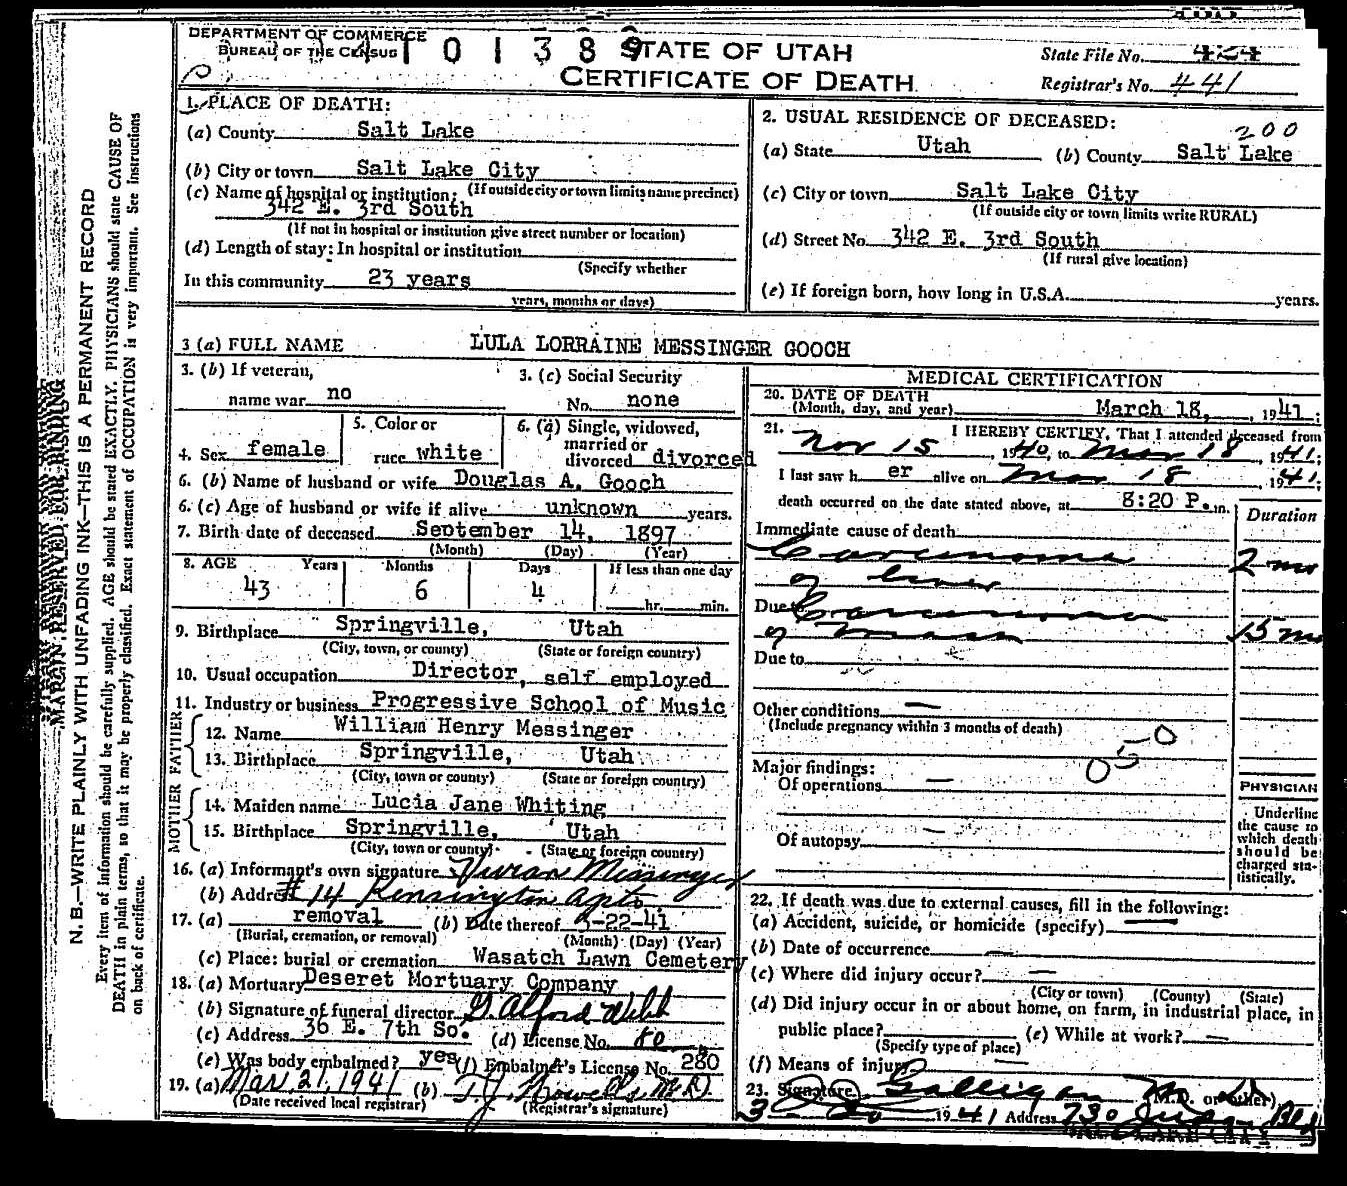 DEPARTMENT OF COMMERCE
BUREAU OF THE CENSUS
1 0 1 3 8 9
STATE OF UTAH
CERTIFICATE OF DEATH
State File No. 424
Registrar's No. 441
MARGIN RESERVED FOR BINDING
N. B.—WRITE PLAINLY WITH UNFADING INK—THIS IS A PERMANENT RECORD
Every item of information should be carefully supplied. AGE should be stated EXACTLY. PHYSICIANS should state CAUSE OF
DEATH in plain terms, so that it may be properly classified. Exact statement of OCCUPATION is very important. See instructions
on back of certificate.
1. PLACE OF DEATH:
(a) County Salt Lake
(b) City or town Salt Lake City
(If outside city or town limits name precinct)
(c) Name of hospital or institution:
342 E. 3rd South
(If not in hospital or institution give street number or location)
(d) Length of stay: In hospital or institution
(Specify whether
In this community 23 years
years, months or days)
2. USUAL RESIDENCE OF DECEASED:
200
(a) State Utah (b) County Salt Lake
(c) City or town Salt Lake City
(If outside city or town limits write RURAL)
(d) Street No. 342 E. 3rd South
(If rural give location)
(e) If foreign born, how long in U.S.A. years.
3 (a) FULL NAME LULA LORRAINE MESSINGER GOOCH
3. (b) If veteran,
name war no
3. (c) Social Security
No. none
4. Sex female
5. Color or
race white
6. (a) Single, widowed,
married or
divorced divorced
6. (b) Name of husband or wife Douglas A. Gooch
6. (c) Age of husband or wife if alive unknown years.
7. Birth date of deceased September 14, 1897
(Month) (Day) (Year)
8. AGE Years Months Days If less than one day
43 6 4 hr. min.
9. Birthplace Springville, Utah
(City, town, or county) (State or foreign country)
10. Usual occupation Director, self employed
11. Industry or business Progressive School of Music
FATHER
12. Name William Henry Messinger
13. Birthplace Springville, Utah
(City, town or county) (State or foreign country)
MOTHER
14. Maiden name Lucia Jane Whiting
15. Birthplace Springville, Utah
(City, town or county) (State or foreign country)
16. (a) Informant's own signature Vivian Messinger
(b) Address #14 Kensington Apts
17. (a) removal (b) Date thereof 3-22-41
(Burial, cremation, or removal) (Month) (Day) (Year)
(c) Place: burial or cremation Wasatch Lawn Cemetery
18. (a) Mortuary Deseret Mortuary Company
(b) Signature of funeral director G. Alford Webb
(c) Address 36 E. 7th So. (d) License No. 80
(e) Was body embalmed? yes (f) Embalmer's License No. 280
19. (a) Mar 21, 1941 (b) T.J. Howells M.D.
(Date received local registrar) (Registrar's signature)
MEDICAL CERTIFICATION
20. DATE OF DEATH
(Month, day, and year) March 18, 1941;
21. I HEREBY CERTIFY, That I attended deceased from
Nov 15, 1940, to Mar 18, 1941;
I last saw her alive on Mar 18, 1941;
death occurred on the date stated above, at 8:20 P.m.
Duration
Immediate cause of death
Carcinoma 2 mo
of liver
Due to Carcinoma
of breast 15 mo
Due to
Other conditions —
(Include pregnancy within 3 months of death)
050
Major findings:
Of operations —
Of autopsy —
PHYSICIAN
Underline
the cause to
which death
should be
charged sta-
tistically.
22. If death was due to external causes, fill in the following:
(a) Accident, suicide, or homicide (specify) —
(b) Date of occurrence —
(c) Where did injury occur? —
(City or town) (County) (State)
(d) Did injury occur in or about home, on farm, in industrial place, in
public place? (e) While at work? —
(Specify type of place)
(f) Means of injury —
23. Signature Galligan M.D.
(M.D. or other)
1941 Address 730